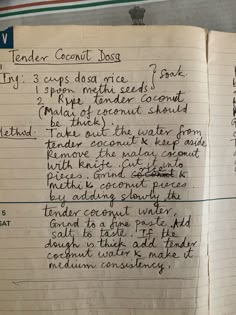 V
Tender Coconut Dosa
Ing: 3 cups dosa rice } Soak
1 spoon methi seeds
2 Ripe tender coconut
(Malai of coconut should
be thick)
Method: Take out the water from
tender coconut & keep aside
Remove the malai coconut
with knife. Cut it into
pieces. Grind &
methi & coconut pieces
by adding slowly the
5 tender coconut water.
SAT Grind to a fine paste. Add
salt to taste. If the
dough is thick add tender
coconut water & make it
medium consistency.